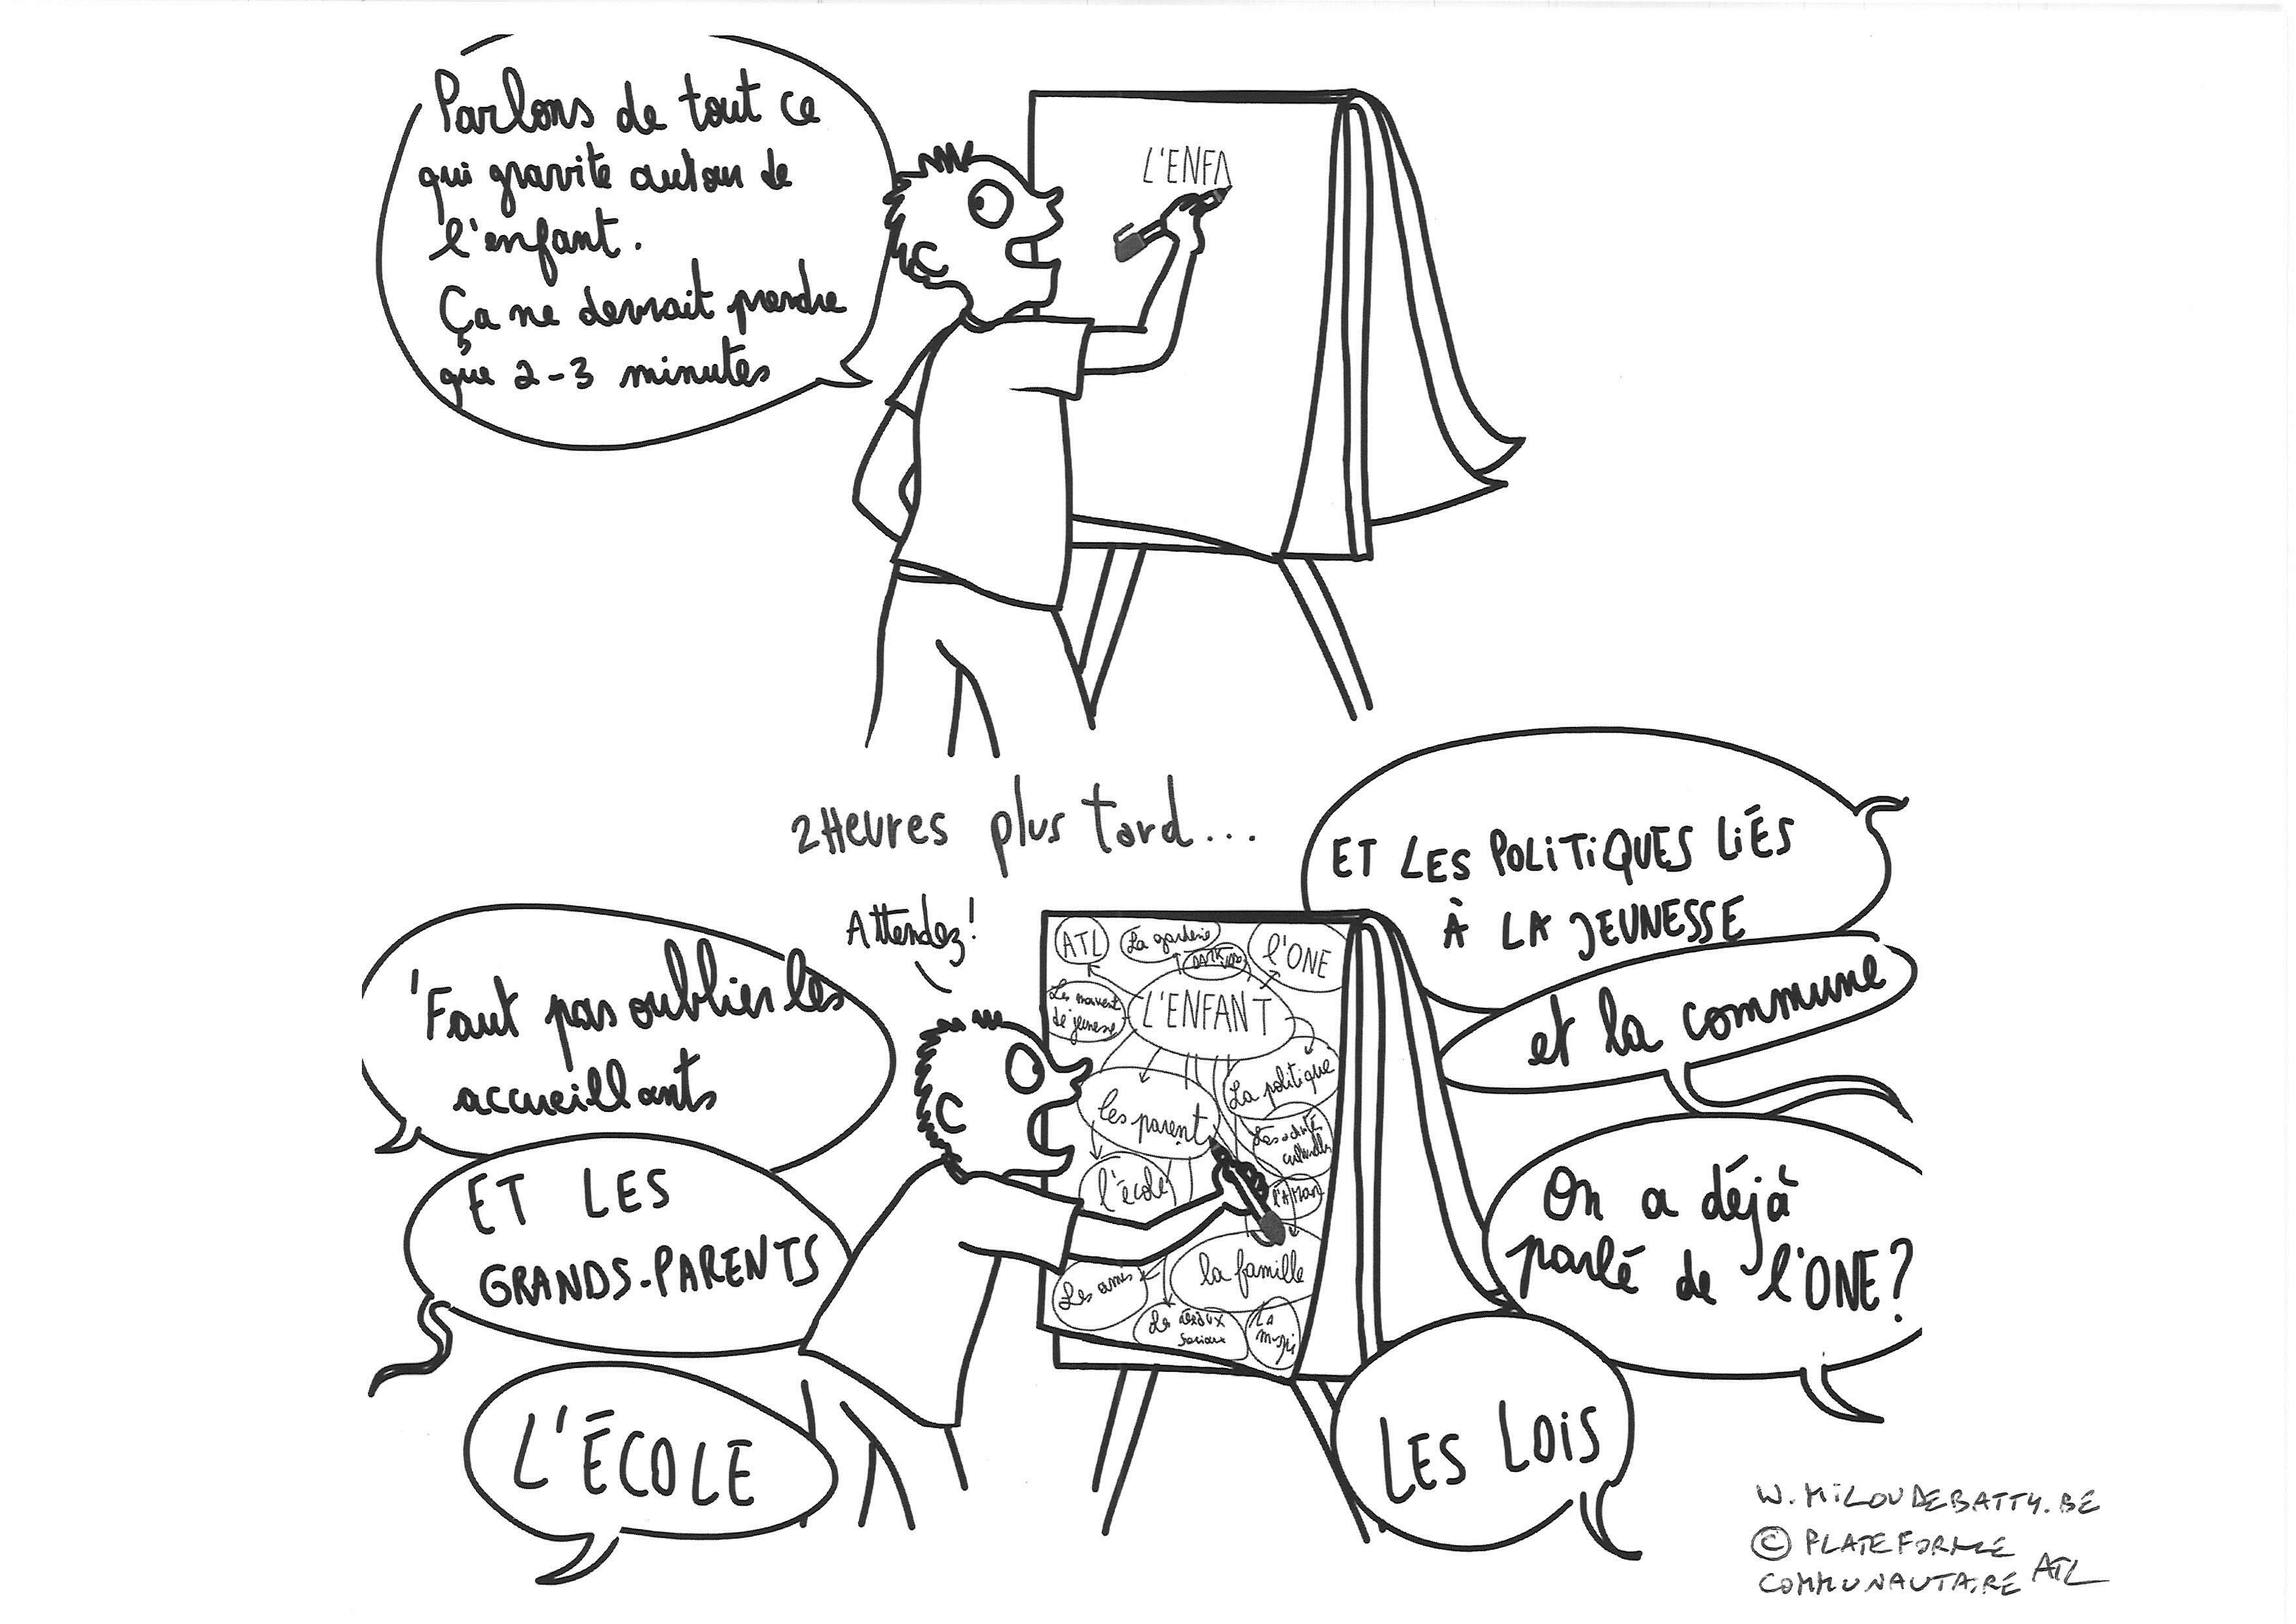 Parlons de tout ce
qui gravite autour de
l'enfant.
Ça ne devrait prendre
que 2-3 minutes
L'ENFA
2 Heures plus tard...
ET LES POLITIQUES LIÉS
À LA JEUNESSE
et la commune
On a déjà
parlé de l'ONE?
LES LOIS
Attendez!
'Faut pas oublier les
accueillants
ET LES
GRANDS-PARENTS
L'ÉCOLE
ATL
La garderie
l'ONE
L'ENFANT
de jeunesse
les parent
La politique
culturelles
l'école
la famille
Les amis
sociaux
La
W.MILOUDEBATTY.BE
© PLATEFORME
COMMUNAUTAIRE ATL